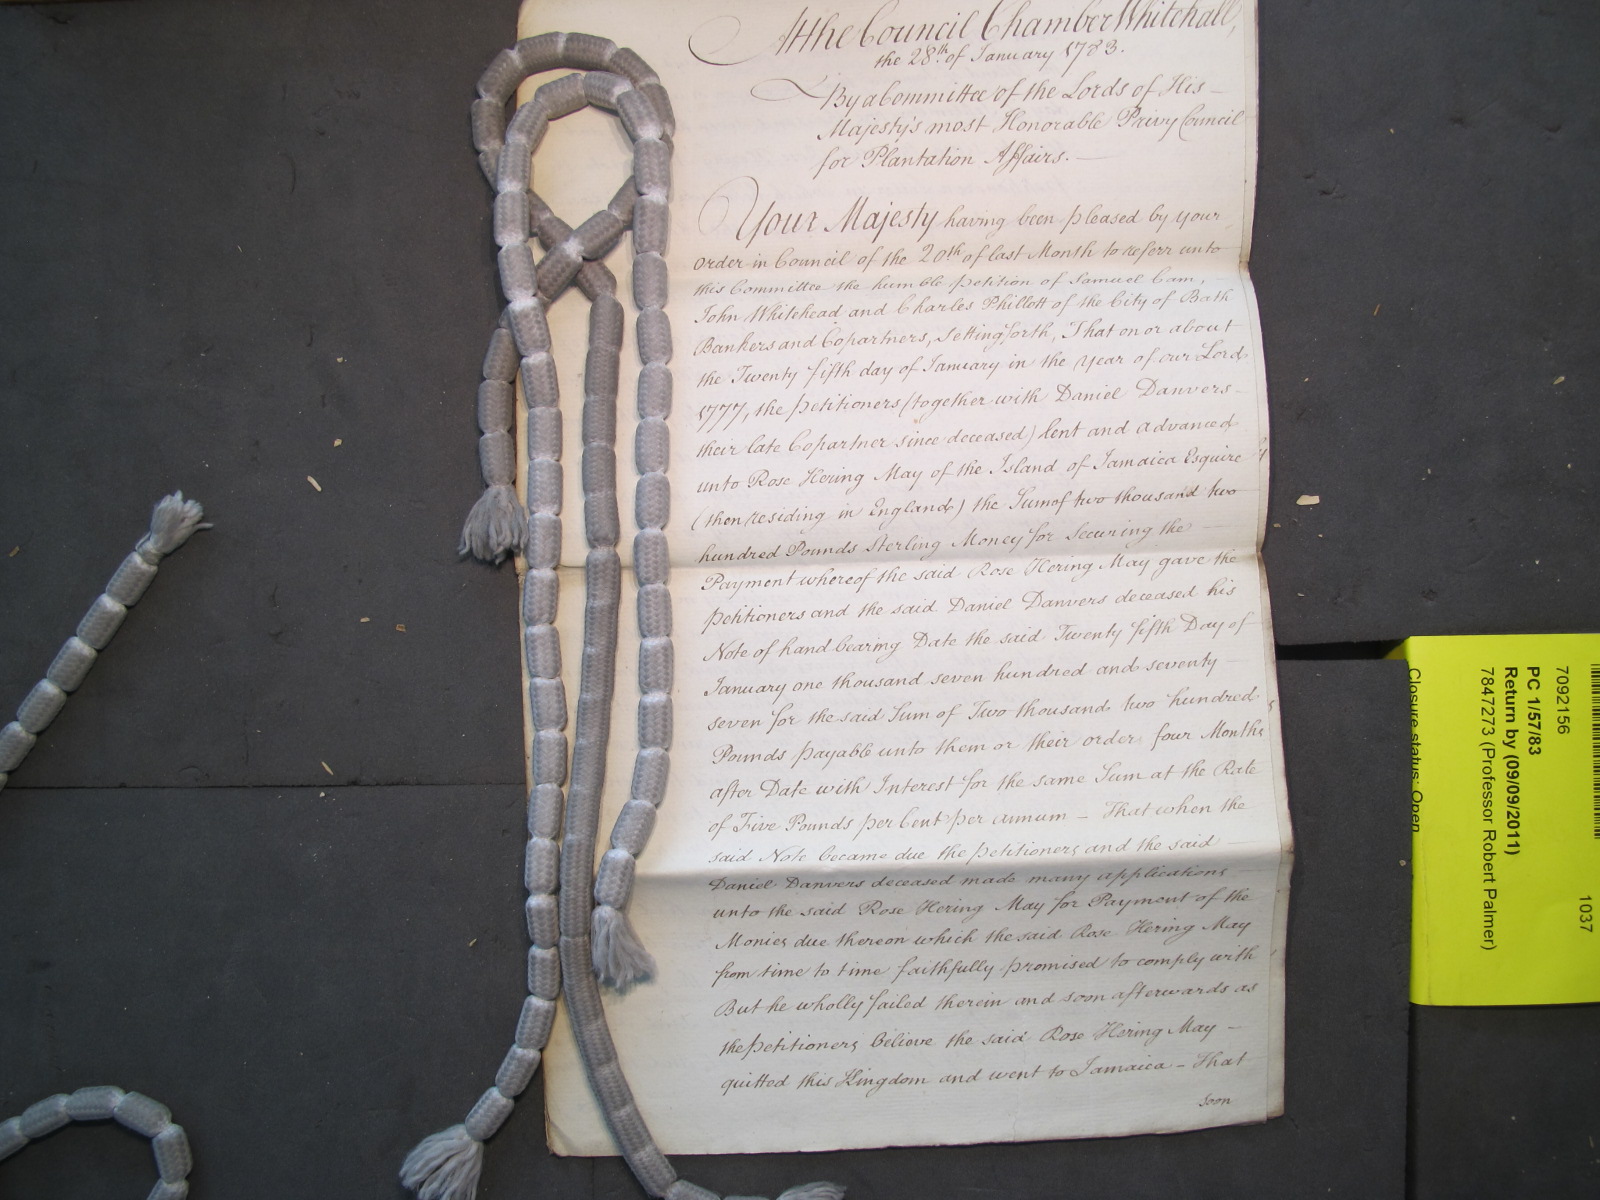 At the Council Chamber Whitehall,
the 28th of January 1783.
By a Committee of the Lords of His
Majesty's most Honorable Privy Council
for Plantation Affairs.
Your Majesty having been pleased by your
Order in Council of the 20th of last Month to referr unto
this Committee the humble petition of Samuel Cam,
John Whitehead and Charles Phillott of the City of Bath
Bankers and Copartners, setting forth, That on or about
the Twenty fifth day of January in the Year of our Lord
1777, the petitioners (together with Daniel Danvers
their late Copartner since deceased) lent and advanced
unto Rose Hering May of the Island of Jamaica Esquire
(then residing in England) the Sum of two thousand two
hundred Pounds Sterling Money for Securing the
Payment whereof the said Rose Hering May gave the
petitioners and the said Daniel Danvers deceased his
Note of hand bearing Date the said Twenty fifth Day of
January one thousand seven hundred and seventy
seven for the said Sum of Two thousand two hundred
Pounds payable unto them or their order four Months
after Date with Interest for the same Sum at the Rate
of Five Pounds per Cent per annum – That when the
said Note became due the petitioners and the said
Daniel Danvers deceased made many applications
unto the said Rose Hering May for Payment of the
Monies due thereon which the said Rose Hering May
from time to time faithfully promised to comply with
But he wholly failed therein and soon afterwards as
the petitioners believe the said Rose Hering May
quitted this Kingdom and went to Jamaica – That
soon
7092156
1037
PC 1/57/83
Return by (09/09/2011)
7847273 (Professor Robert Palmer)
Closure status: Open